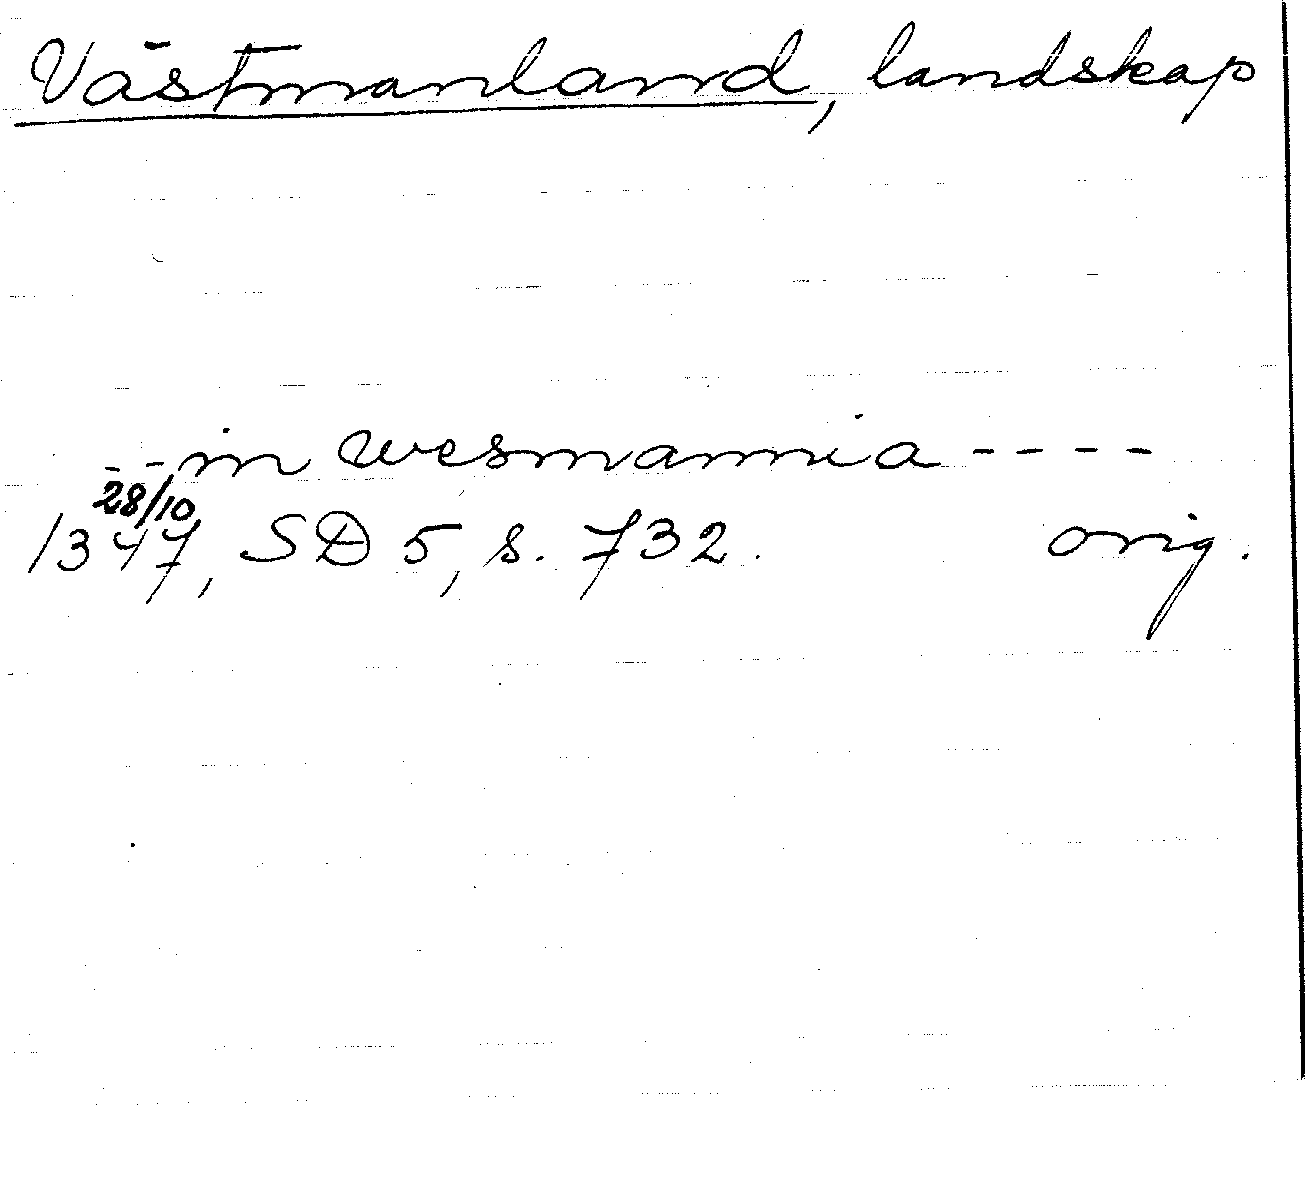 Västmanland, landskap
--in wesmannia----
28/10
1347, SD 5, s. 732. orig.